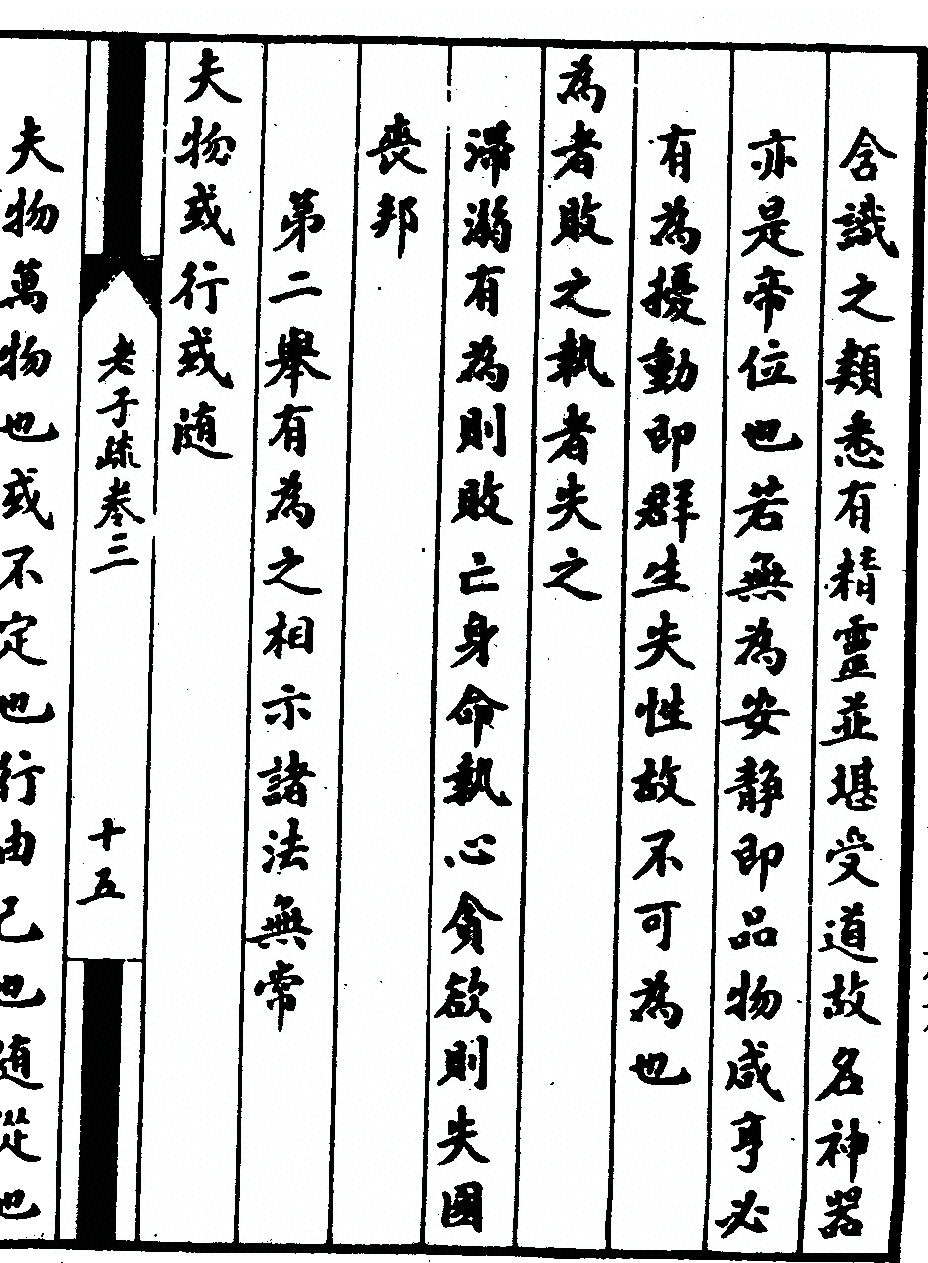 含識之類悉有精靈並堪受道故名神器
亦是帝位也若無為安静即品物咸亨必
有為擾動即群生失性故不可為也
為者敗之執者失之
滯溺有為則敗亡身命執心貪欲則失國
喪邦
第二舉有為之相示諸法無常
夫物或行或随
老子疏卷三
十五
夫物萬物也或不定也行由己也随從也